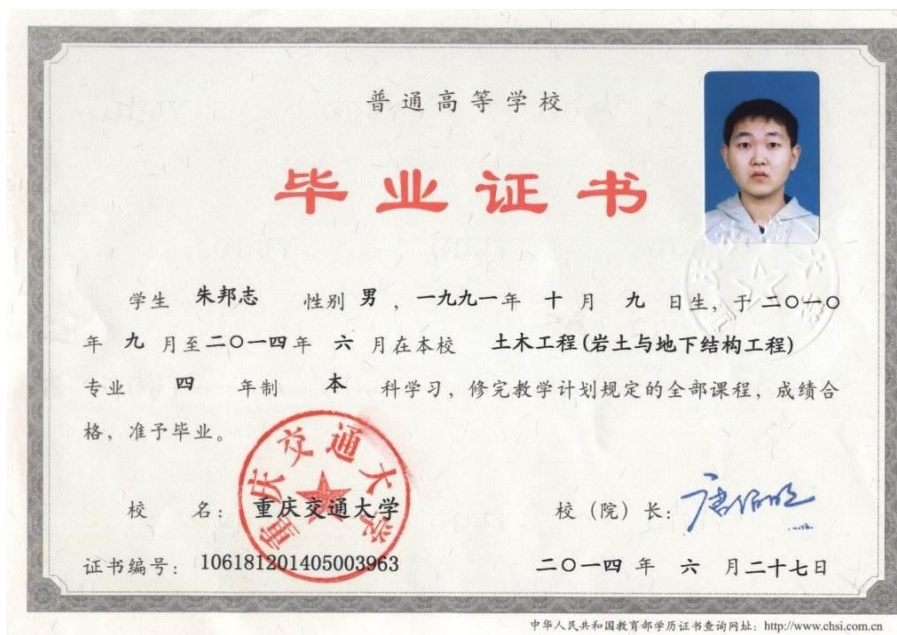 普通高等学校
毕业证书
学生 朱邦志 性别 男 ，一九九一年 十 月 九 日生，于二〇一〇
年 九 月至二〇一四年 六 月在本校 土木工程(岩土与地下结构工程)
专业 四 年制 本 科学习，修完教学计划规定的全部课程，成绩合
格，准予毕业。
重庆交通大学
校 名：重庆交通大学 校（院）长：唐伯明
证书编号：106181201405003963 二〇一四 年 六 月二十七日
中华人民共和国教育部学历证书查询网址：http://www.chsi.com.cn